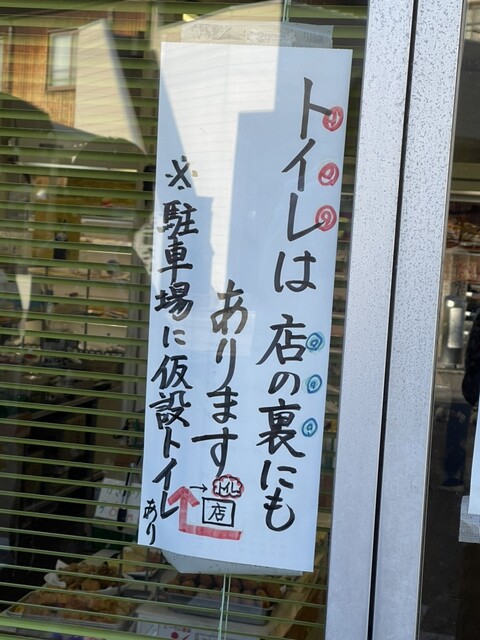 トイレは店の裏にも
あります
※駐車場に仮設トイレあり
店